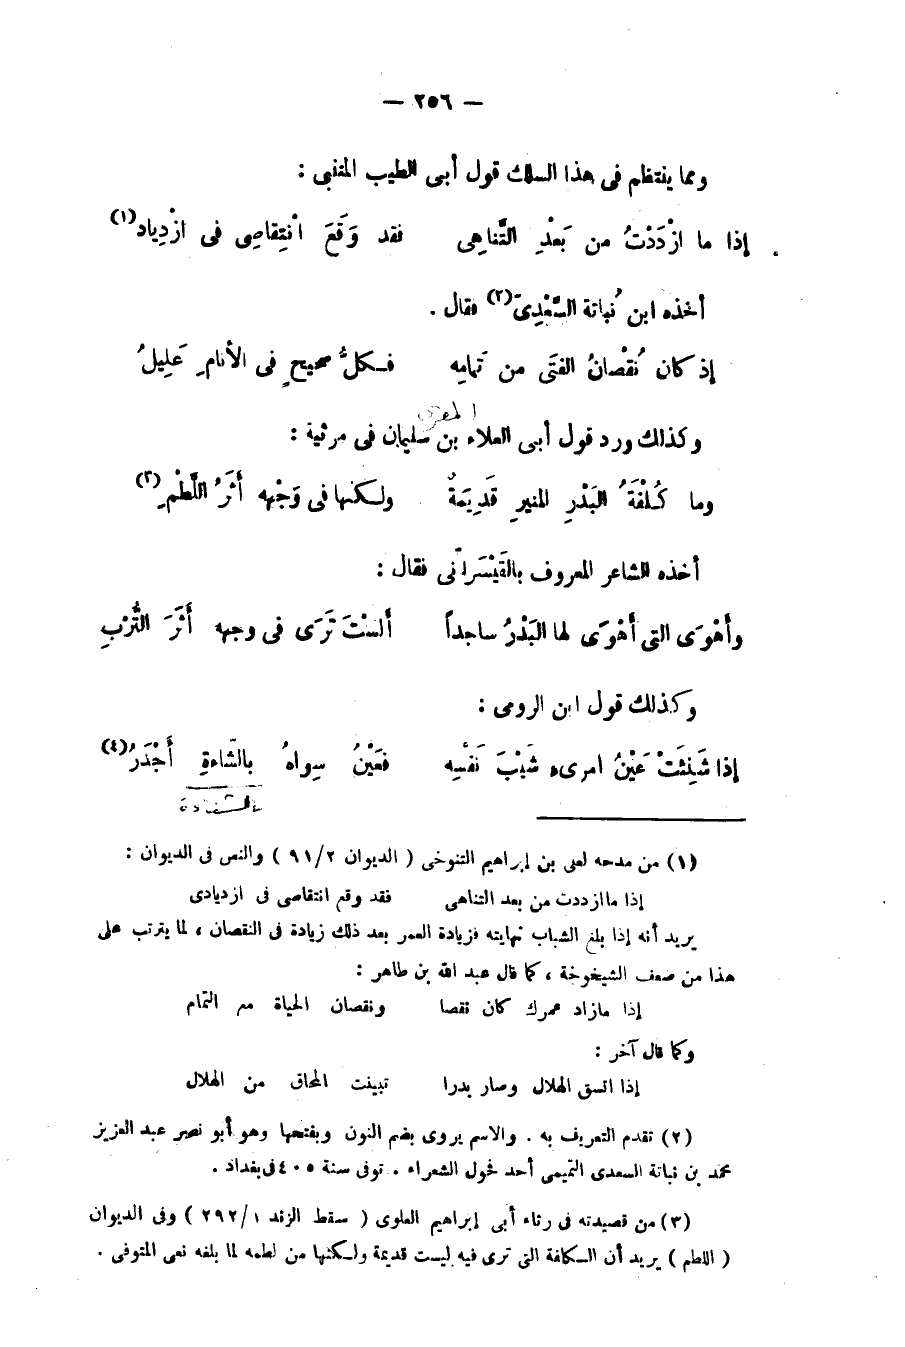 — ٢٥٦ —
ومما ينتظم فى هذا السلك قول أبى الطيب المتنبى :
إذا ما ازْدَدْتُ من بَعْدِ التَّناهِى فقد وَقَعَ انْتِقاصِى فى ازْدِيادِ (١)
أخذه ابن نُباتة السَّعْدِىّ (٢) فقال .
إذ كان نُقْصانُ الفتَى من تَمامِه فـكلُّ صحيحٍ فى الأنامِ عَلِيلُ
المعرى
وكذلك ورد قول أبى العلاء بن سليمان فى مرثية :
وما كُلْفَةُ البَدْرِ المنيرِ قَدِيمَةٌ ولـكنها فى وَجْهِه أَثَرُ اللَّطْمِ (٣)
أخذه الشاعر المعروف بالقَيْسَرانّى فقال :
وأَهْوَى التى أَهْوَى لها البَدْرُ ساجداً أَلسْتَ تَرَى فى وجهه أَثَرَ التُّرْبِ
وكذلك قول ابن الرومى :
إذا شَنِئَتْ عَيْنُ امرىء شَيْبَ نَفْسِه فعَيْنُ سِواهُ بالشّاءةِ أَجْدَرُ (٤)
بالشناءة
(١) من مدحه لعلى بن إبراهيم التنوخى ( الديوان ٩١/٢ ) والنص فى الديوان :
إذا ما ازددت من بعد التناهى فقد وقع انتقاصى فى ازديادى
يريد أنه إذا بلغ الشباب نهايته فزيادة العمر بعد ذلك زيادة فى النقصان ، لما يترتب على
هذا من ضعف الشيخوخة ، كما قال عبد الله بن طاهر :
إذا مازاد عمرك كان نقصا ونقصان الحياة مع التمام
وكما قال آخر :
إذا اتسق الهلال وصار بدرا تبينت المحاق من الهلال
(٢) تقدم التعريف به . والاسم يروى بضم النون وبفتحها وهو أبو نصير عبد العزيز
محمد بن نباتة السعدى التميمى أحد فحول الشعراء . توفى سنة ٤٠٥ فى بغداد .
(٣) من قصيدته فى رثاء أبى إبراهيم العلوى ( سقط الزند ٢٩٢/١ ) وفى الديوان
( اللطم ) يريد أن الـكلفة التى ترى فيه ليست قديمة ولـكنها من لطمه لما بلغه نعى المتوفى .